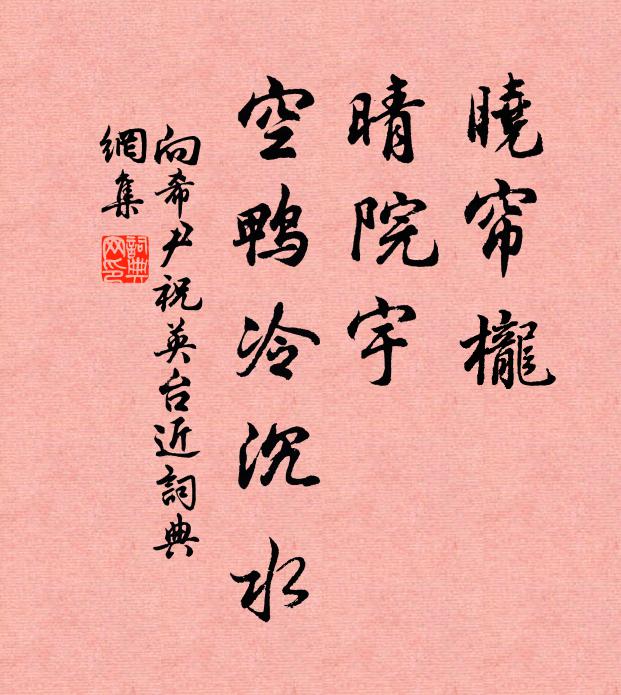 曉帘櫳
晴院宇
空鸭冷沉水
向希尹祝英台近詞典
網集
詞典
网印